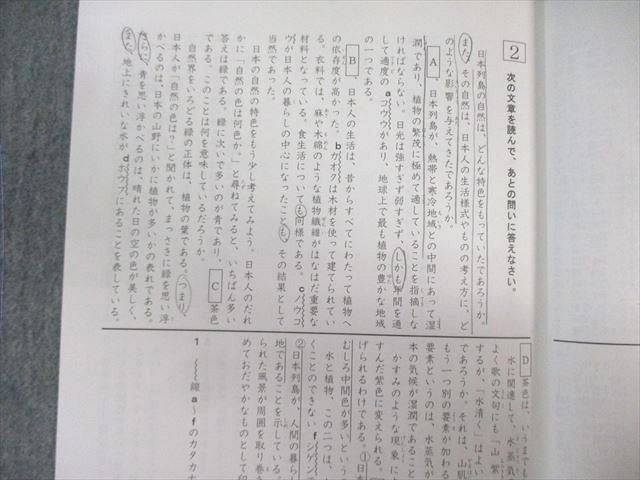 2 次の文章を読んで、あとの問いに答えなさい。
日本列島の自然は、どんな特色をもっていたであろうか。
また、その自然は、日本人の生活様式やものの考え方に、ど
のような影響を与えてきたであろうか。
A、日本列島が、熱帯と寒冷地域との中間にあって湿
潤であり、植物の繁茂に極めて適していることを指摘しな
ければならない。日光は強すぎず弱すぎず、しかも年間を通
して適度のaコウウがあり、地球上で最も植物の豊かな地域
の一つである。
B、日本人の生活は、昔からすべてにわたって植物へ
の依存度が高かった。bカオクは木材を使って建てられてい
る。衣料では、麻や木綿のような植物繊維がはなはだ重要な
材料となっている。食生活についても同様である。cノウコ
ウが日本人の暮らしの中心になったことも、その結果として
当然であった。
日本の自然の特色をもう少し考えてみよう。日本人のだれ
かに「自然の色は何色か。」と尋ねてみると、いちばん多い
答えは緑である。緑に次いで多いのが青であり、C茶色
である。このことは何を意味しているだろうか。
自然界をいろどる緑の正体は、植物の葉である。つまり、
日本人が「自然の色は？」と聞かれて、まっさきに緑を思い浮
かべるのは、日本の山野にいかに植物が多いかの表れである。
さらに、青を思い浮かべるのは、晴れた日の空の色が美しく、
また、地上にきれいな水がdホウフにあることを表している。
D茶色は、いうまでも
水に関連して、水蒸気
よく歌の文句にも「山紫
するが、「水清く」はよい
であろうか。それは、山肌
もう一つ別の要素が加わる
要素というのは、水蒸気が
本の気候が湿潤であること
かすみのような現象
すんだ紫色に変えられる。
げられるわけである。①日本
むしろ中間色が多いという
水と植物、この二つは、
くことのできないfシゲンで
②日本列島が、人間の暮らし
地であることを示している。
られた風景が周囲を取り巻き
めておだやかなものとして印
1 線a～fのカタカナ